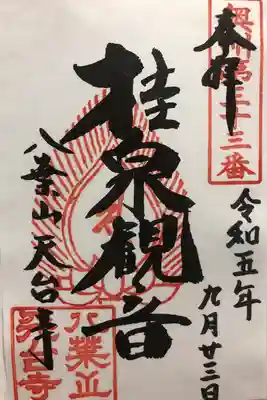 奥州第三十三番
奉拝
桂泉観音
八葉山天台寺
令和五年
九月廿三日
八葉山
天台寺